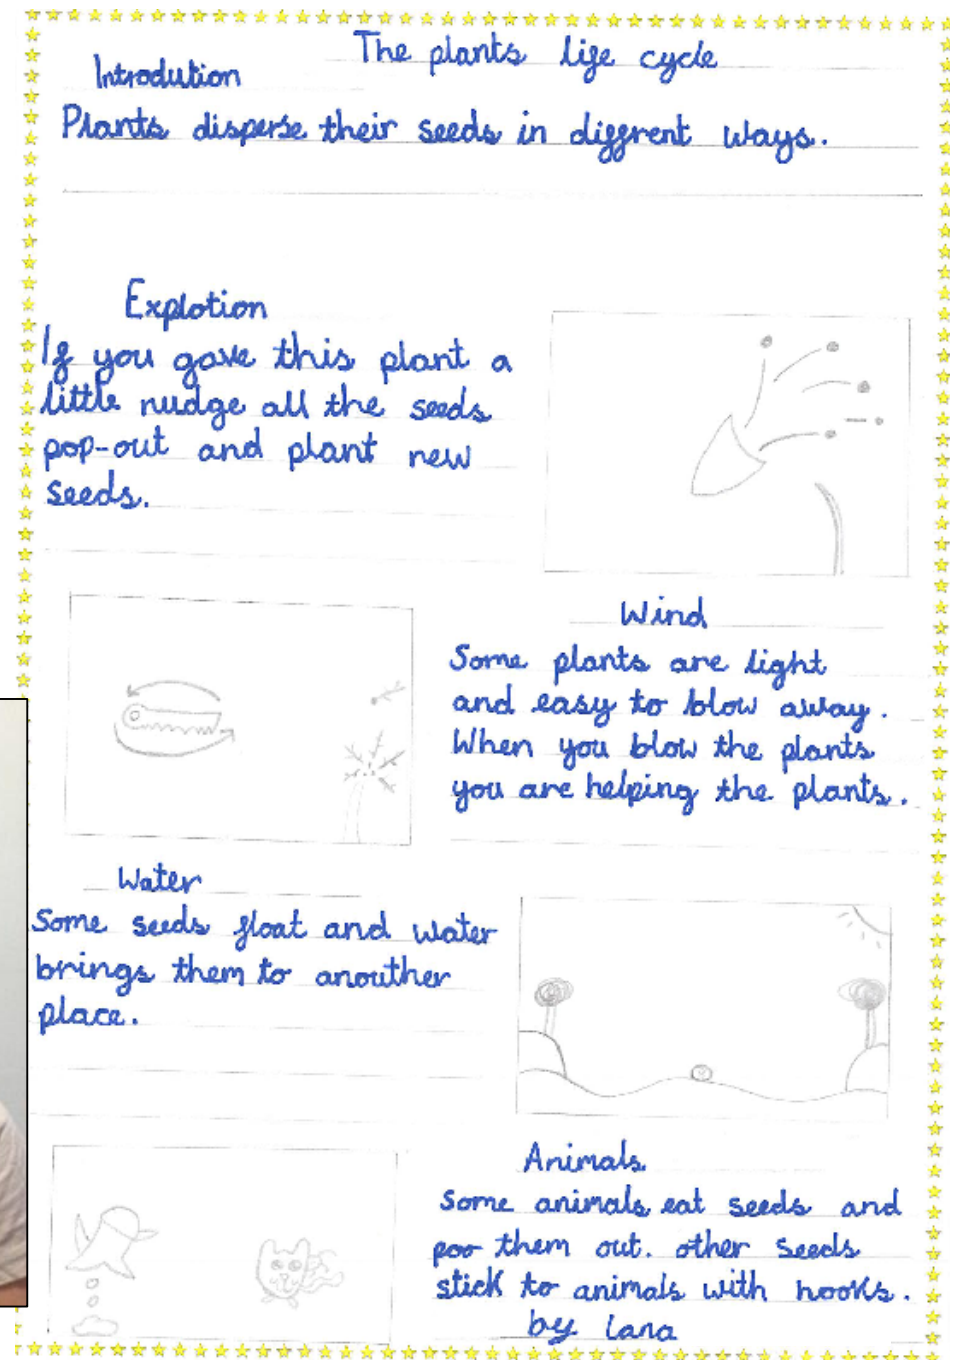 The plants life cycle
Introdution
Plants disperse their seeds in diffrent ways.
Explotion
If you gave this plant a
little nudge all the seeds
pop-out and plant new
seeds.
Wind
Some plants are light
and easy to blow away.
When you blow the plants
you are helping the plants.
Water
Some seeds float and water
brings them to anouther
place.
Animals
Some animals eat seeds and
poo them out. other seeds
stick to animals with hooks.
by Lana